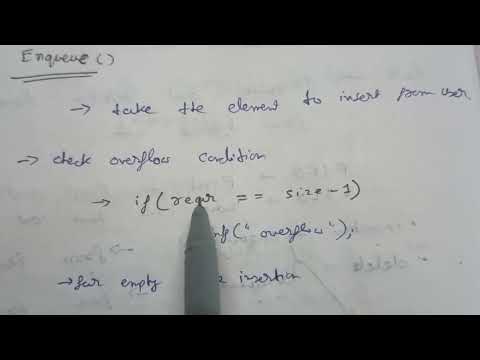 Enqueue()
→ take the element to insert from user
→ check overflow condition
→ if(rear == size-1)
("overflow");
→ for empty insertion